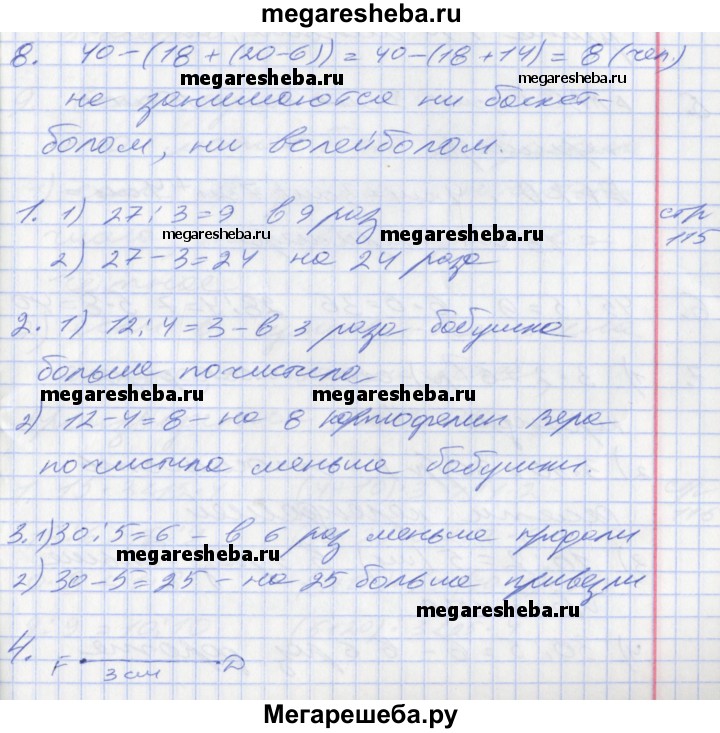 megaresheba.ru
8. 40-(18+(20-6))=40-(18+14)=8 (чел.)
megaresheba.ru megaresheba.ru
не занимаются ни баскет-
болом, ни волейболом.
1. 1) 27:3=9 в 9 раз стр
megaresheba.ru megaresheba.ru 115
2) 27-3=24 на 24 раза
2. 1) 12:4=3 - в 3 раза бабушка
больше почистила
megaresheba.ru megaresheba.ru
2) 12-4=8 - на 8 картофелин Вера
почистила меньше бабушки.
3. 1) 30:5=6 - в 6 раз меньше продали
megaresheba.ru
2) 30-5=25 - на 25 больше привезли
megaresheba.ru
4. F D
3 см
Мегарешеба.ру